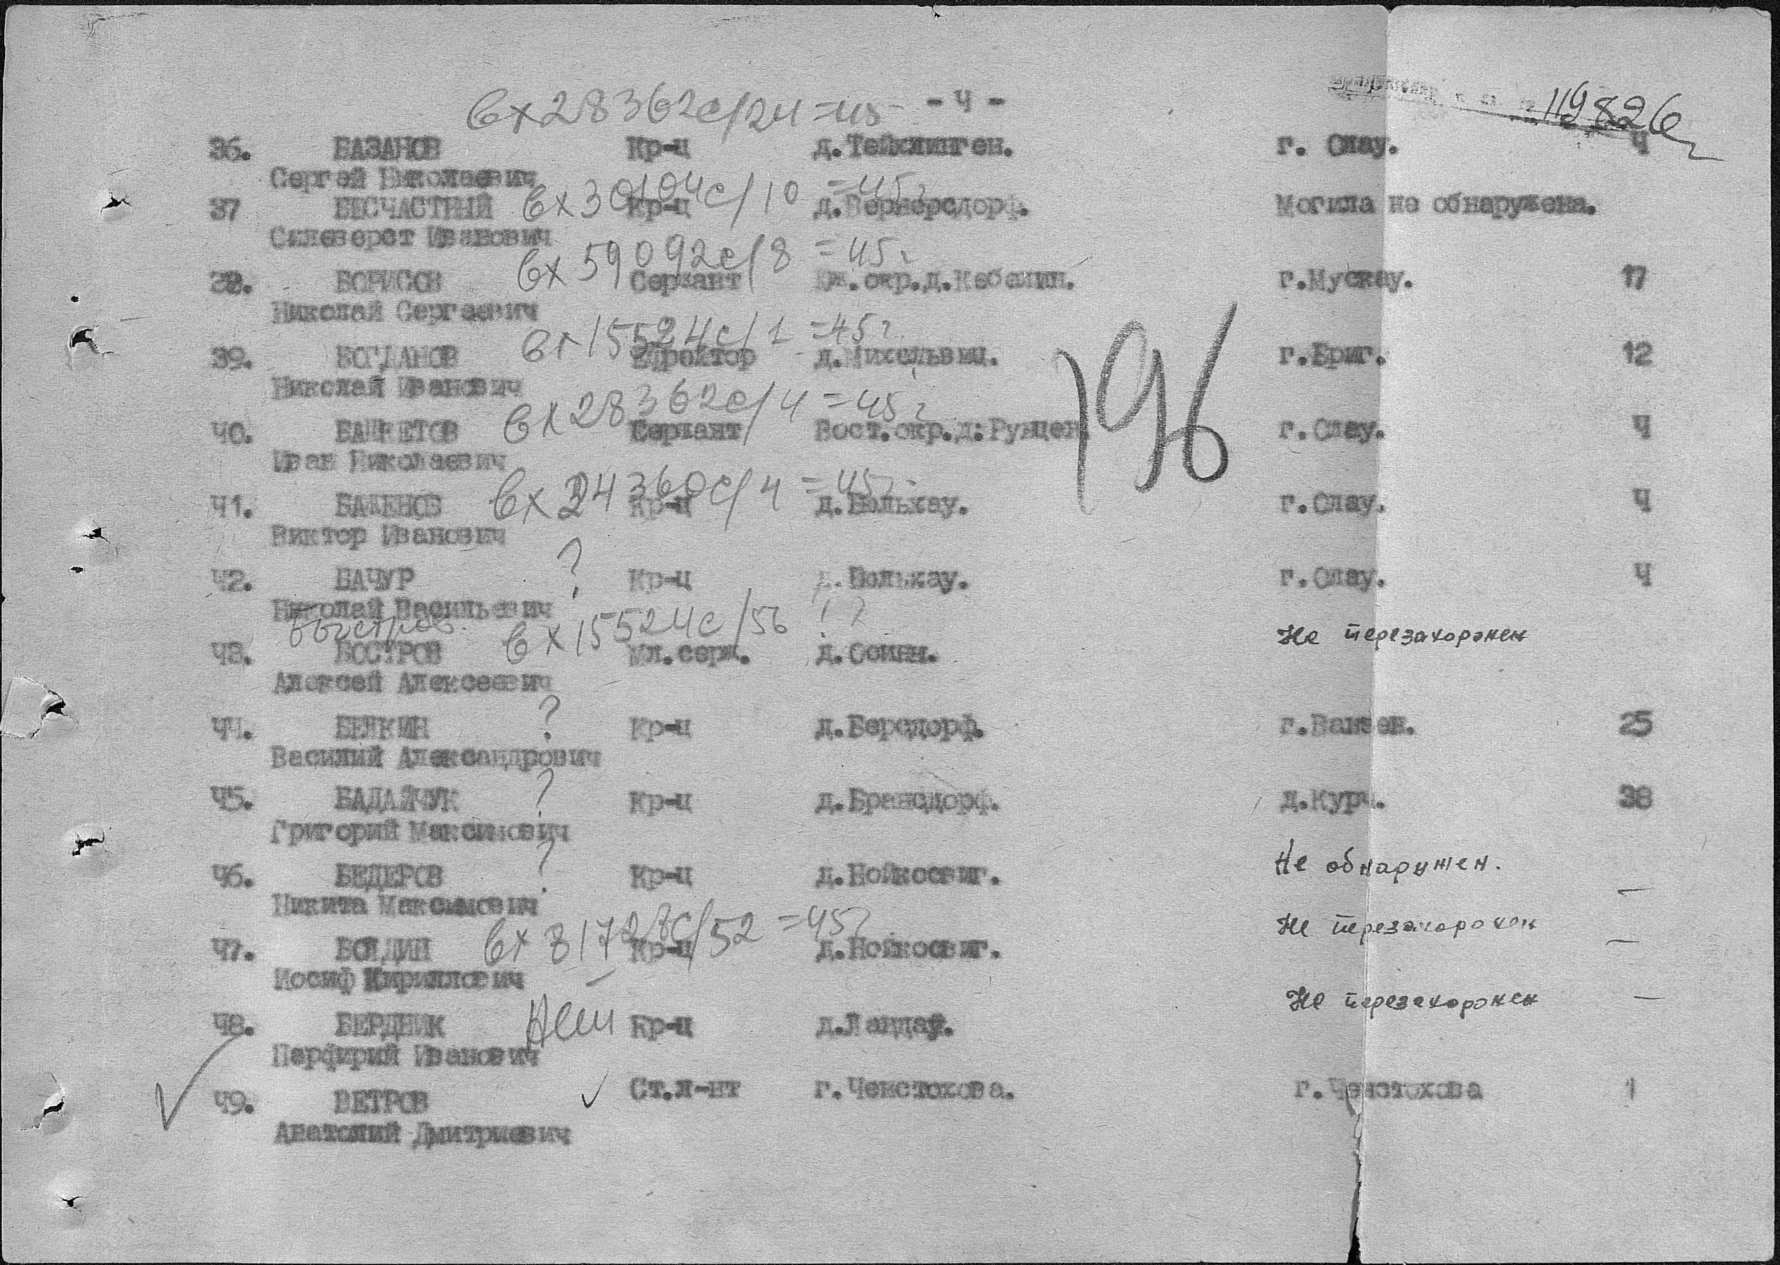 вх 28362с/24 = 45 - 4 -
119826
36. БАЗАНОВ Кр-ц д.Тейхлинген. г. Олау. 4
Сергей Николаевич вх 30104с/10 = 45г
37 БЕСЧАСТНЫЙ Кр-ц д.Вернерсдорф. Могила не обнаружена.
Селеверст Иванович вх 59092с/8 = 45г
38. БОРИСОВ Сержант Юж.окр.д.Кебелин. г.Мускау. 17
Николай Сергеевич вх 15524с/1 = 45г
39. БОГДАНОВ Ефрейтор д.Михельвиц. г.Бриг. 12
Николай Иванович вх 28362с/4 = 45г
196
40. Сержант Вост.окр.д.Рунцен. г.Олау. 4
Иван Николаевич вх 24360с/4 = 45г
41. БАЖЕНОВ Кр-ц д.Вольхау. г.Олау. 4
Виктор Иванович
42. БАЧУР ? Кр-ц д.Вольхау. г.Олау. 4
Николай Васильевич вх 15524с/56 ! ?
Быстров Не перезахоронен
43. БОСТРОВ Мл.серж. д.
Алексей Алексеевич
44. БЕЛКИН ? Кр-ц д.Берсдорф. г.Ванзен. 25
Василий Александрович
45. БАДАЙЧУК ? Кр-ц д.Брансдорф. д.Курч. 38
Григорий Максимович
Не обнаружен.
46. БЕДЕРОВ ? Кр-ц д.Нойкосвиг. —
Никита Максимович вх 81728с/52 = 45г
Не перезахоронен —
47. БОЛДИН Кр-ц д.Нойкосвиг.
Иосиф Кириллович
Не перезахоронен —
48. БЕРДНИК Нет Кр-ц д.Ландау.
Перфирий Иванович
49. ВЕТРОВ Ст.л-нт г.Ченстохова. г.Ченстохова 1
Анатолий Дмитриевич